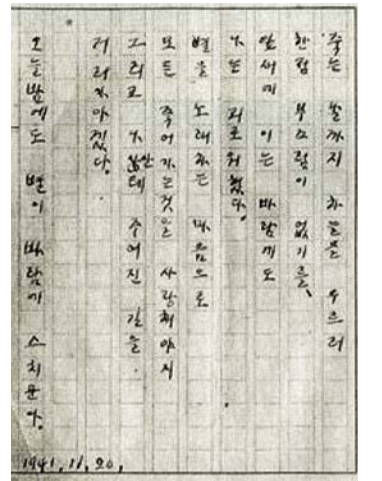 죽는 날까지 하늘을 우르러
한점 부끄럼이 없기를,
잎새에 이는 바람에도
나는 괴로워했다.
별을 노래하는 마음으로
모든 죽어가는것을 사랑해야지
그리고 나안테 주어진 길을
거러가야겠다.
오늘밤에도 별이 바람에 스치운다.
1941, 11, 20,